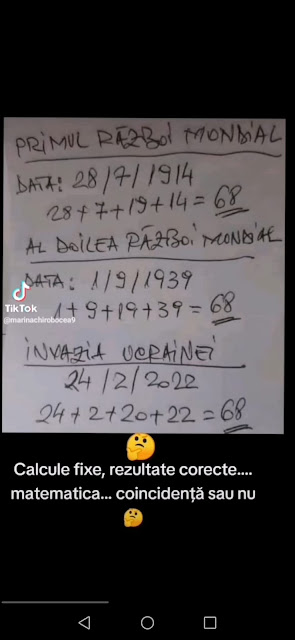 PRIMUL RĂZBOI MONDIAL
DATA: 28/7/1914
28+7+19+14=68
AL DOILEA RĂZBOI MONDIAL
DATA: 1/9/1939
1+9+19+39=68
TikTok
@marinachirobocea9
INVAZIA UCRAINEI
24/2/2022
24+2+20+22=68
🤔
Calcule fixe, rezultate corecte....
matematica... coincidență sau nu
🤔